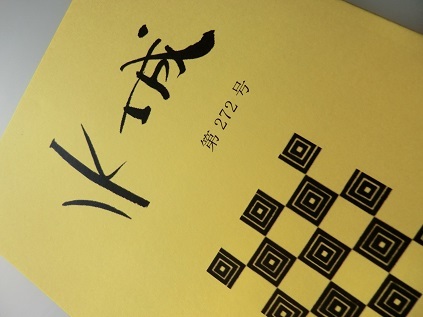 水城
第272号